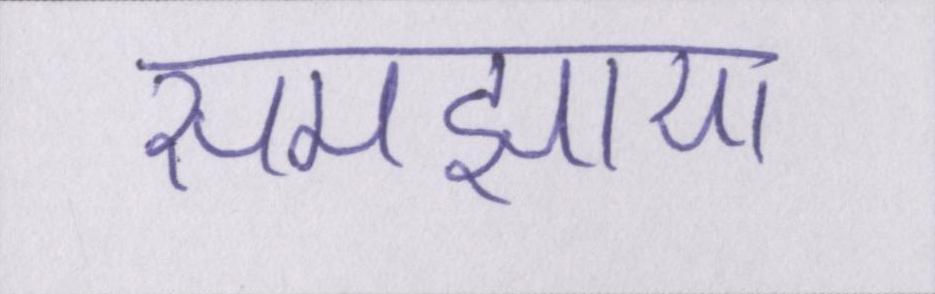 समझाया